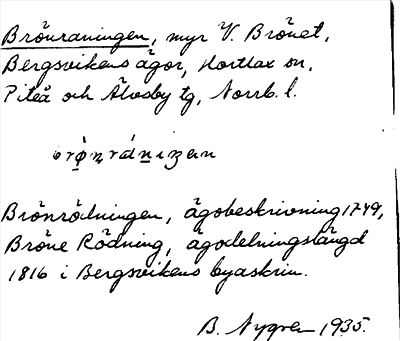 Brönraningen, myr V. Brönet,
Bergsvikens ägor, Hortlax sn,
Piteå och Älvsby tg, Norrb. l.
Brönrödningen, ägobeskrivning 1749,
Bröne Rödning, ägodelningslängd
1816 i Bergsvikens byaskrin.
B. Nygren 1935.